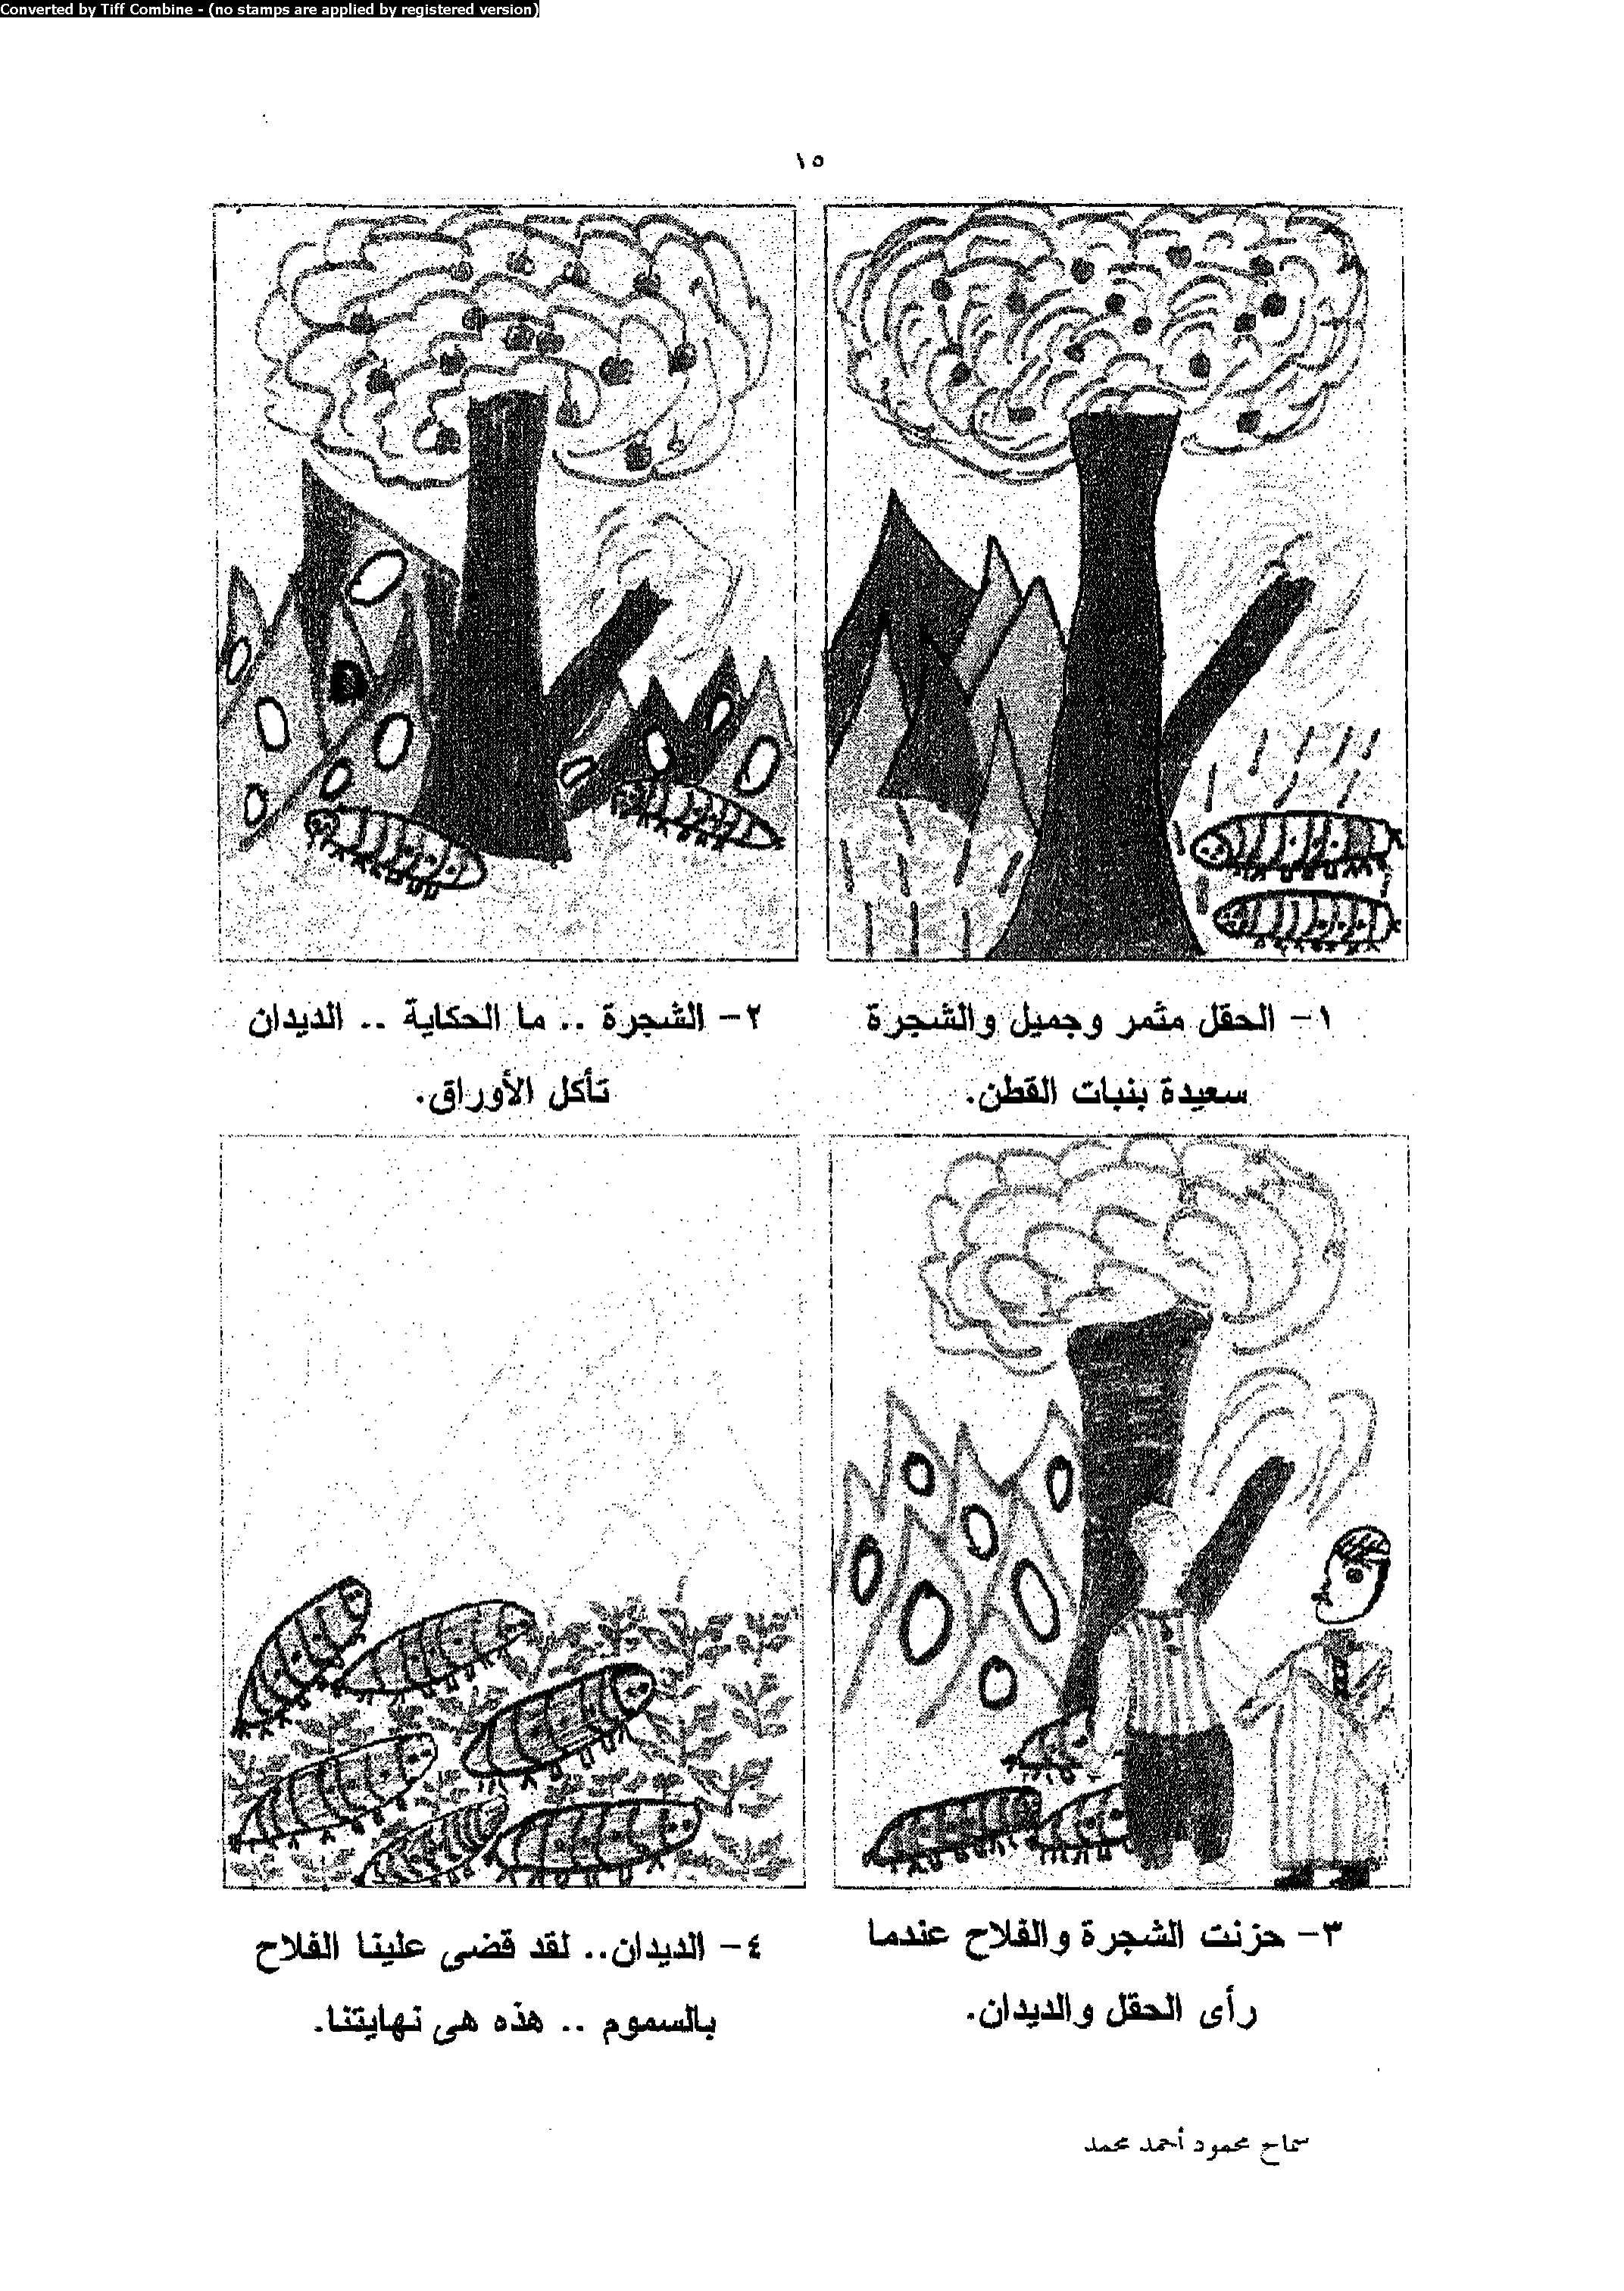 Converted by Tiff Combine - (no stamps are applied by registered version)
١٥
١- الحقل مثمر وجميل والشجرة
سعيدة بنبات القطن.
٢- الشجرة .. ما الحكاية .. الديدان
تأكل الأوراق.
٣- حزنت الشجرة والفلاح عندما
رأى الحقل والديدان.
٤- الديدان.. لقد قضى علينا الفلاح
بالسموم .. هذه هى نهايتنا.
سماح محمود أحمد محمد